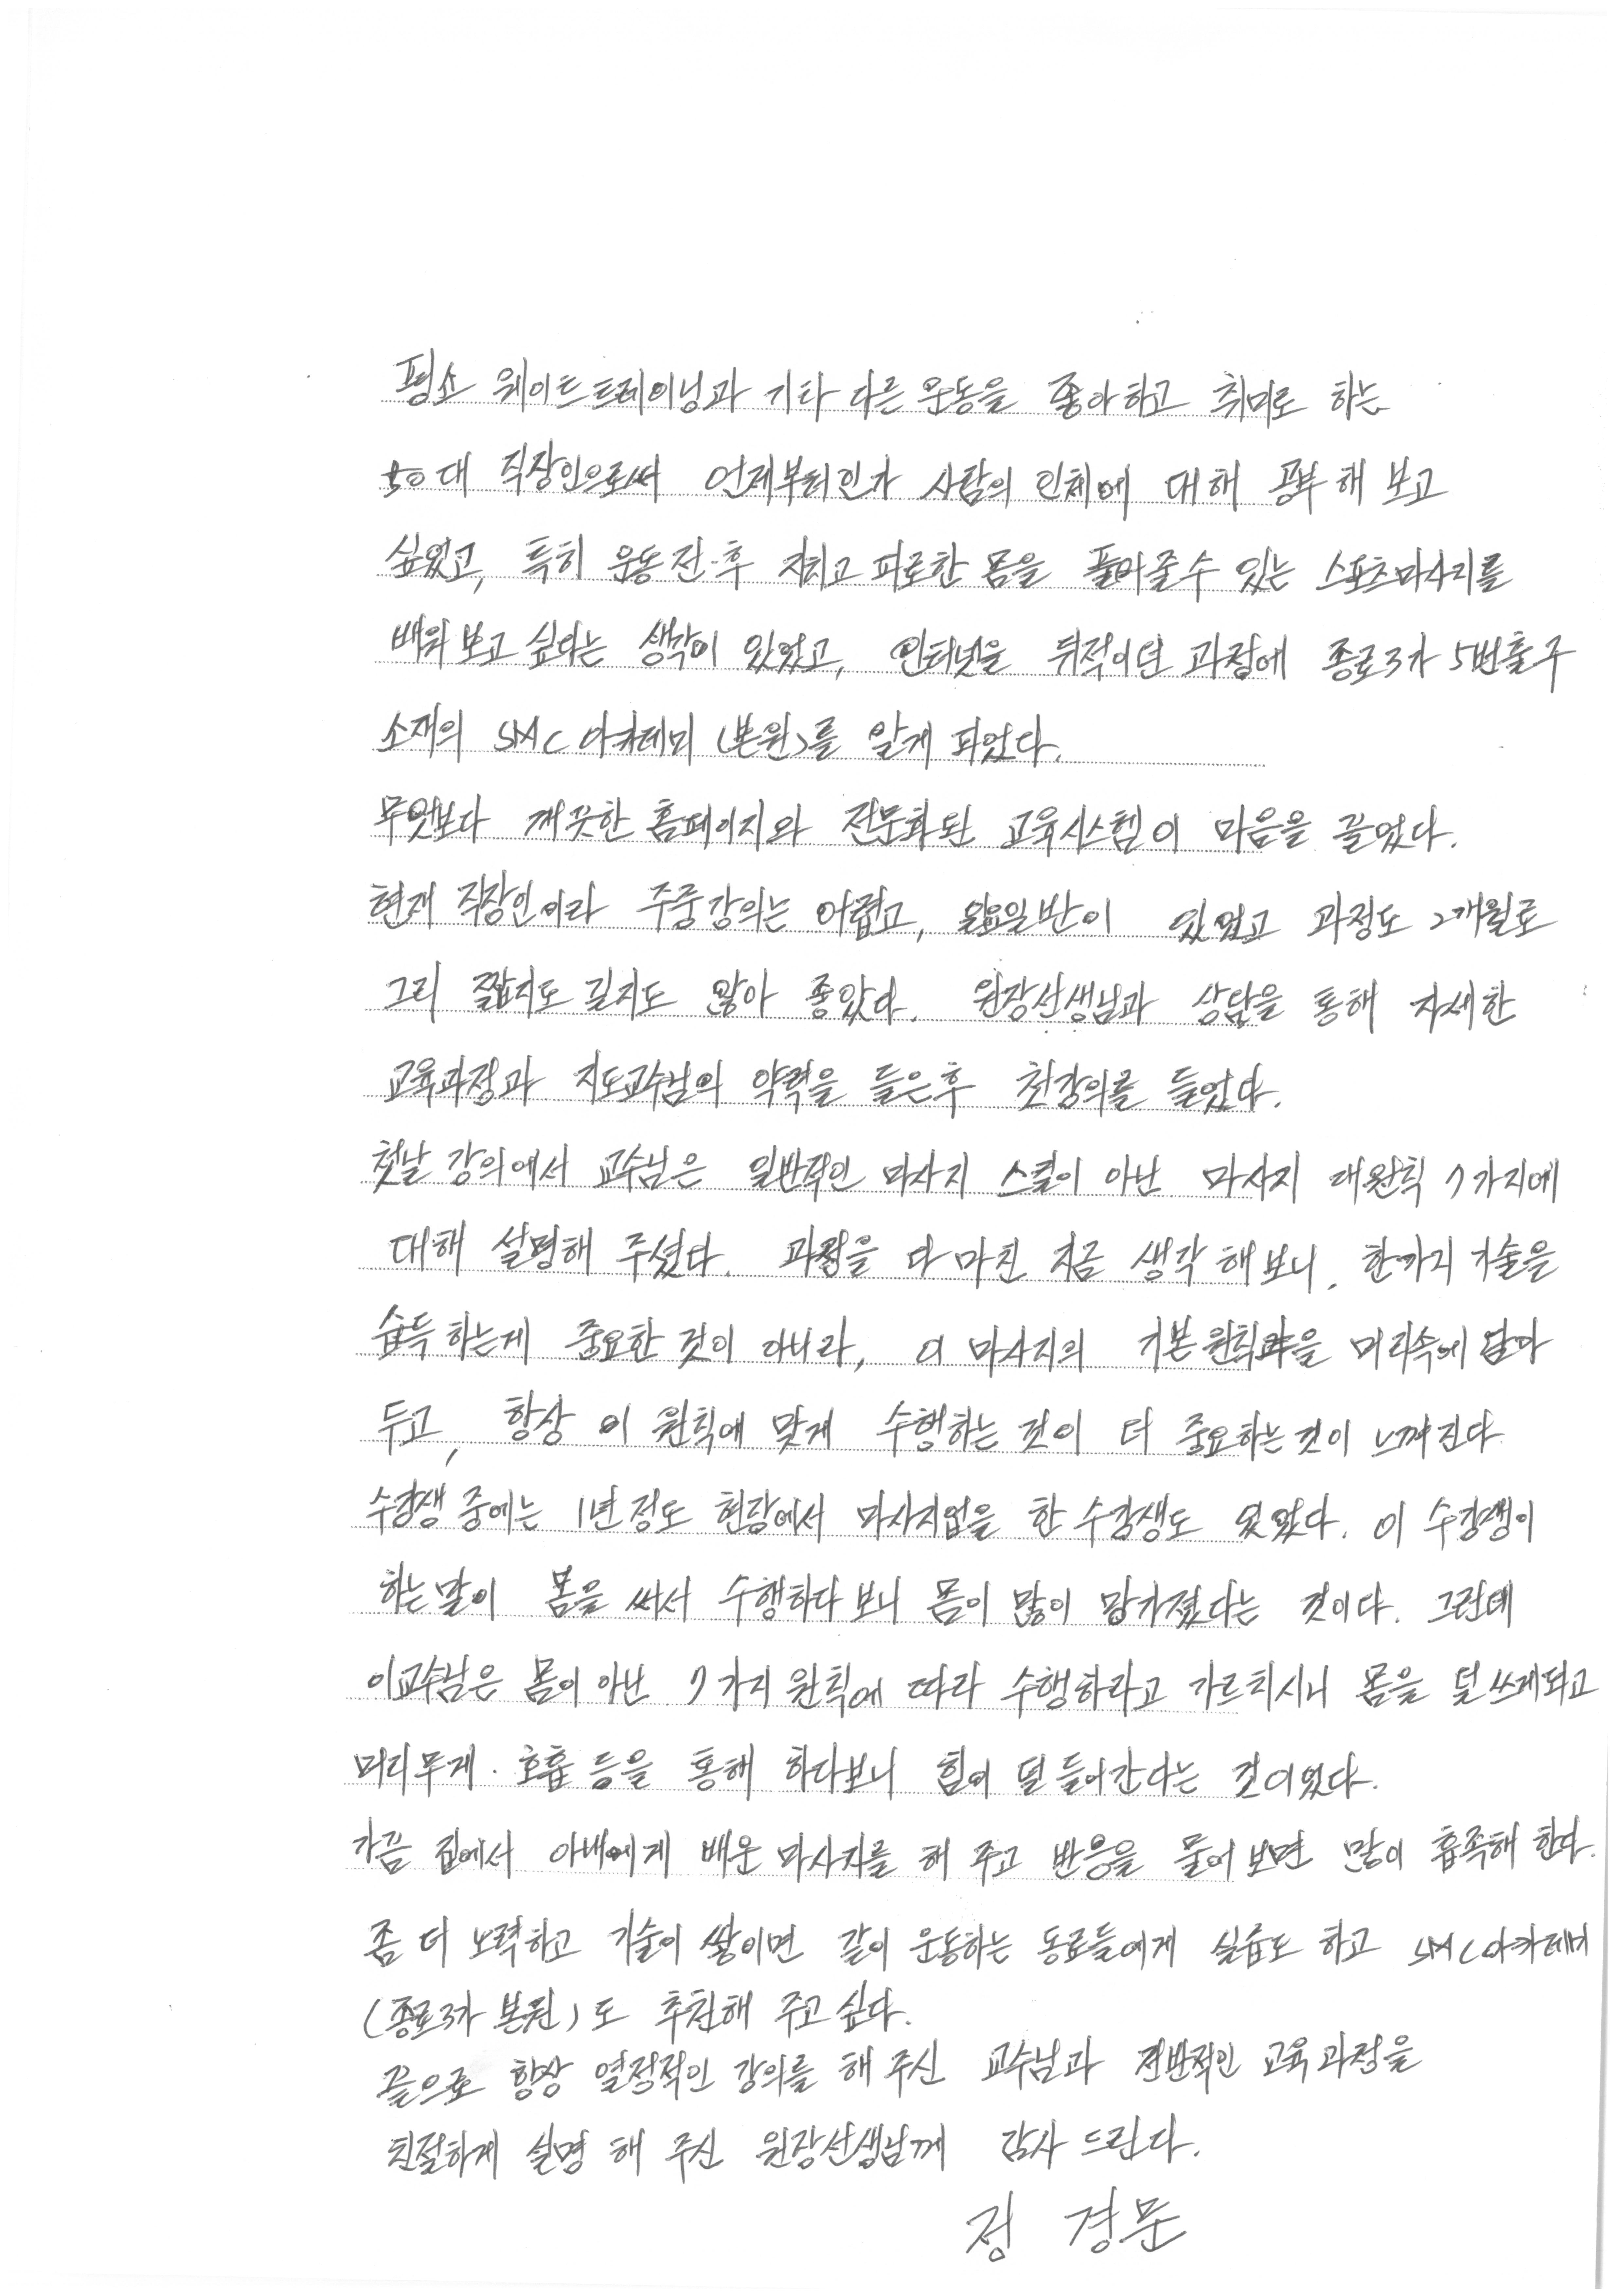 평소 웨이트트레이닝과 기타 다른 운동을 좋아하고 취미로 하는
50대 직장인으로써 언제부터인가 사람의 인체에 대해 공부해 보고
싶었고, 특히 운동 전·후 지치고 피로한 몸을 풀어줄수 있는 스포츠마사지를
배워보고 싶다는 생각이 있었고, 인터넷을 뒤적이던 과정에 종로3가 5번출구
소재의 SMC 아카데미 (본원)를 알게 되었다.
무엇보다 깨끗한 홈페이지와 전문화된 교육시스템이 마음을 끌었다.
현재 직장인이라 주중강의는 어렵고, 일요일반이 있었고 과정도 2개월로
그리 짧지도 길지도 않아 좋았다. 원장선생님과 상담을 통해 자세한
교육과정과 지도교수님의 약력을 들은후 첫강의를 들었다.
첫날 강의에서 교수님은 일반적인 마사지 스킬이 아닌 마사지 대원칙 7가지에
대해 설명해 주셨다. 과정을 다 마친 지금 생각 해보니, 한가지 기술을
습득하는게 중요한 것이 아니라, 이 마사지의 기본원칙을 머리속에 담아
두고, 항상 이 원칙에 맞게 수행하는 것이 더 중요하는것이 느껴진다
수강생 중에는 1년정도 현장에서 마사지업을 한 수강생도 있었다. 이 수강생이
하는말이 몸을 써서 수행하다 보니 몸이 많이 망가졌다는 것이다. 그런데
이교수님은 몸이 아닌 7가지 원칙에 따라 수행하라고 가르치시니 몸을 덜 쓰게되고
머리무게·호흡 등을 통해 하다보니 힘이 덜 들어간다는 것이었다.
가끔 집에서 아내에게 배운 마사지를 해 주고 반응을 물어보면 많이 흡족해 한다.
좀 더 노력하고 기술이 쌓이면 같이 운동하는 동료들에게 실습도 하고 SMC아카데미
(종로3가 본원)도 추천해 주고싶다.
끝으로 항상 열정적인 강의를 해 주신 교수님과 전반적인 교육과정을
친절하게 설명 해 주신 원장선생님께 감사드린다.
정 경문